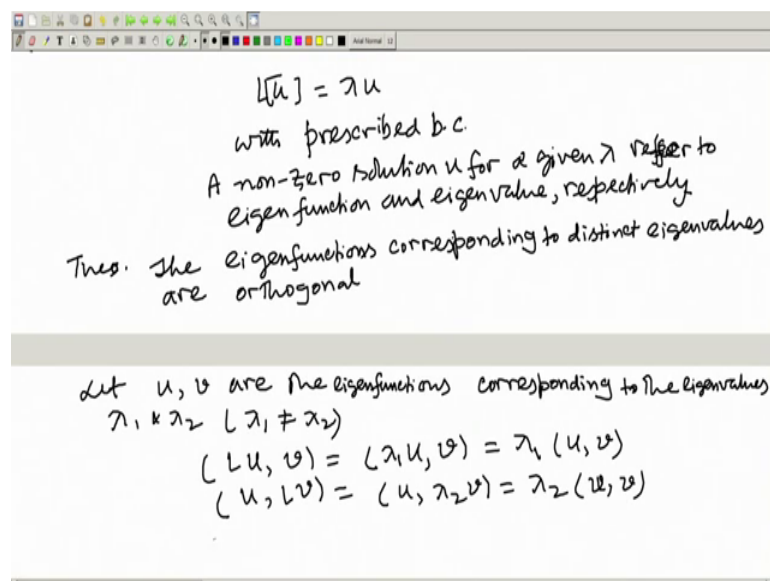 L[u] = λu
with prescribed b.c.
A non-zero solution u for a given λ refer to
eigen function and eigenvalue, respectively
Theo. The eigenfunctions corresponding to distinct eigenvalues
are orthogonal
Let u, v are the eigenfunctions corresponding to the eigenvalues
λ₁ & λ₂ (λ₁ ≠ λ₂)
(Lu, v) = (λ₁u, v) = λ₁ (u, v)
(u, Lv) = (u, λ₂v) = λ₂ (u, v)